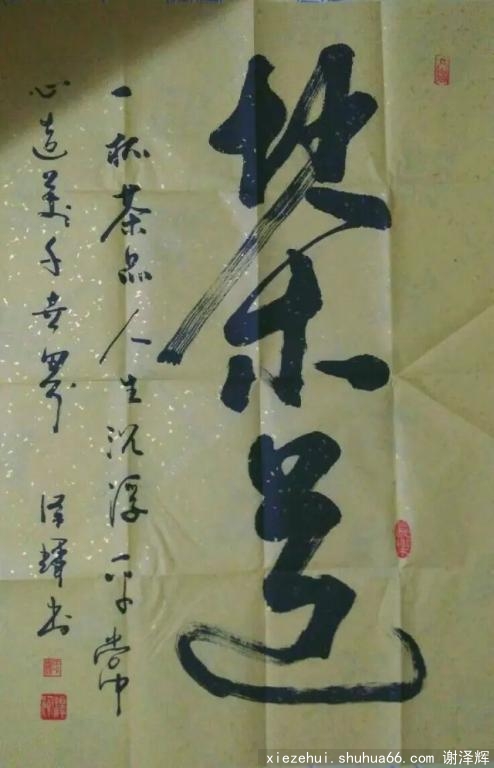 茶道
一杯茶品人生沉浮平常
心造萬千世界 泽辉书
xiezehui.shuhua66.com 谢泽辉